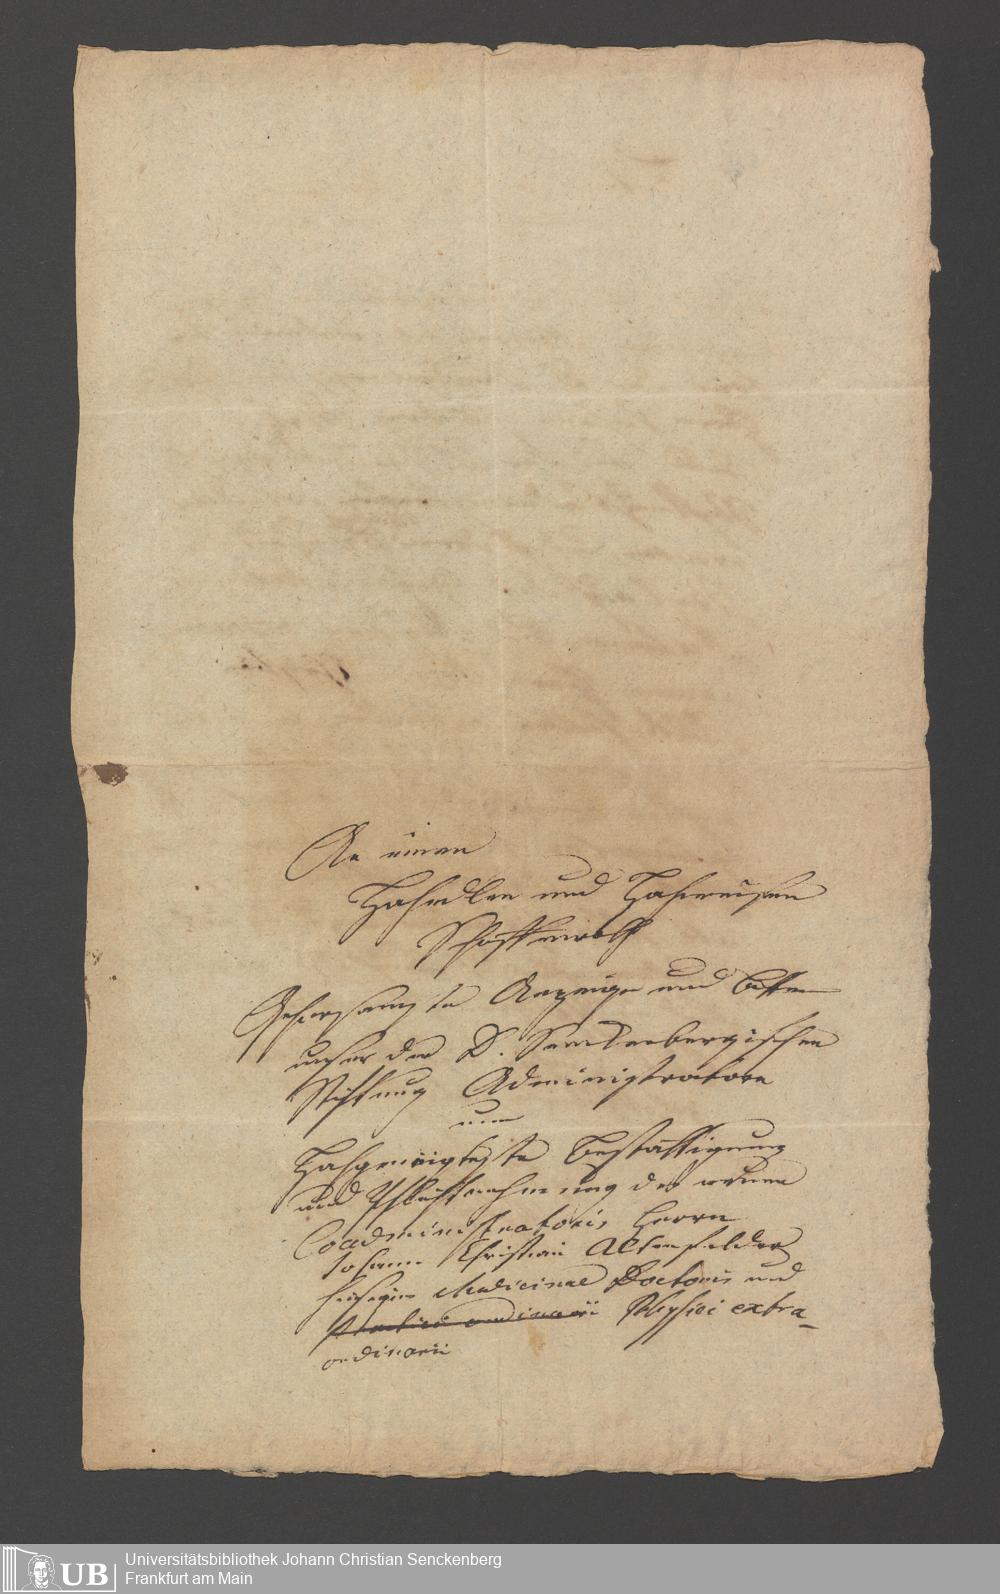 An einen
Hochedlen und Hochweisen
Schöffenrath
Gehorsamste Anzeige und Bitten
unser der D. Senckenbergischen
Stiftung Administratore
um
Hochgeneigteste Bestättigung
und Pflichtnehmung des neuen
Coadministratoris, Herrn
Johann Christian Altenfelder
hiesigen Medicinae Doctoris und
Practici ordinarii Physici extra-
ordinarii
Universitätsbibliothek Johann Christian Senckenberg
Frankfurt am Main
UB